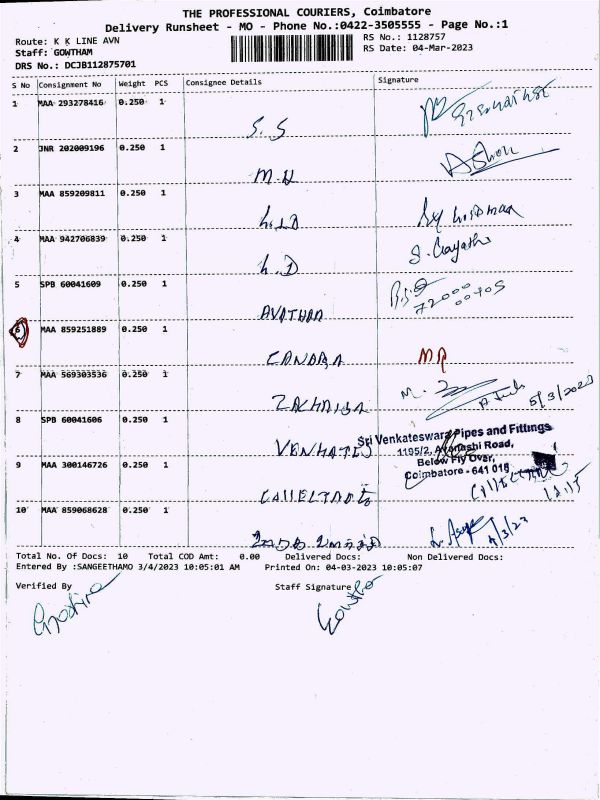 THE PROFESSIONAL COURIERS, Coimbatore
Delivery Runsheet - MO - Phone No.:0422-3505555 - Page No.:1
Route: K K LINE AVN
RS No.: 1128757
Staff: GOWTHAM
RS Date: 04-Mar-2023
DRS No.: DCJB112875701
S No Consignment No Weight PCS Consignee Details Signature
1 MAA 293278416 0.250 1
S.S
2 JNR 202009196 0.250 1
M.H
3 MAA 859209811 0.250 1
4 MAA 942706839 0.250 1
L.D S. Gayathri
5 SPB 60041609 0.250 1
72000
00705
6 MAA 859251889 0.250 1
CANARA MR
7 MAA 569303536 0.250 1
5/3/2023
8 SPB 60041606 0.250 1
VENKATES
Sri Venkateswara Pipes and Fittings
1195/2, Avanashi Road,
Below Fly Over,
Coimbatore - 641 018
9 MAA 300146726 0.250 1
10 MAA 859068628 0.250 1
4/3/23
Total No. Of Docs: 10 Total COD Amt: 0.00 Delivered Docs: Non Delivered Docs:
Entered By :SANGEETHAMO 3/4/2023 10:05:01 AM Printed On: 04-03-2023 10:05:07
Verified By Staff Signature